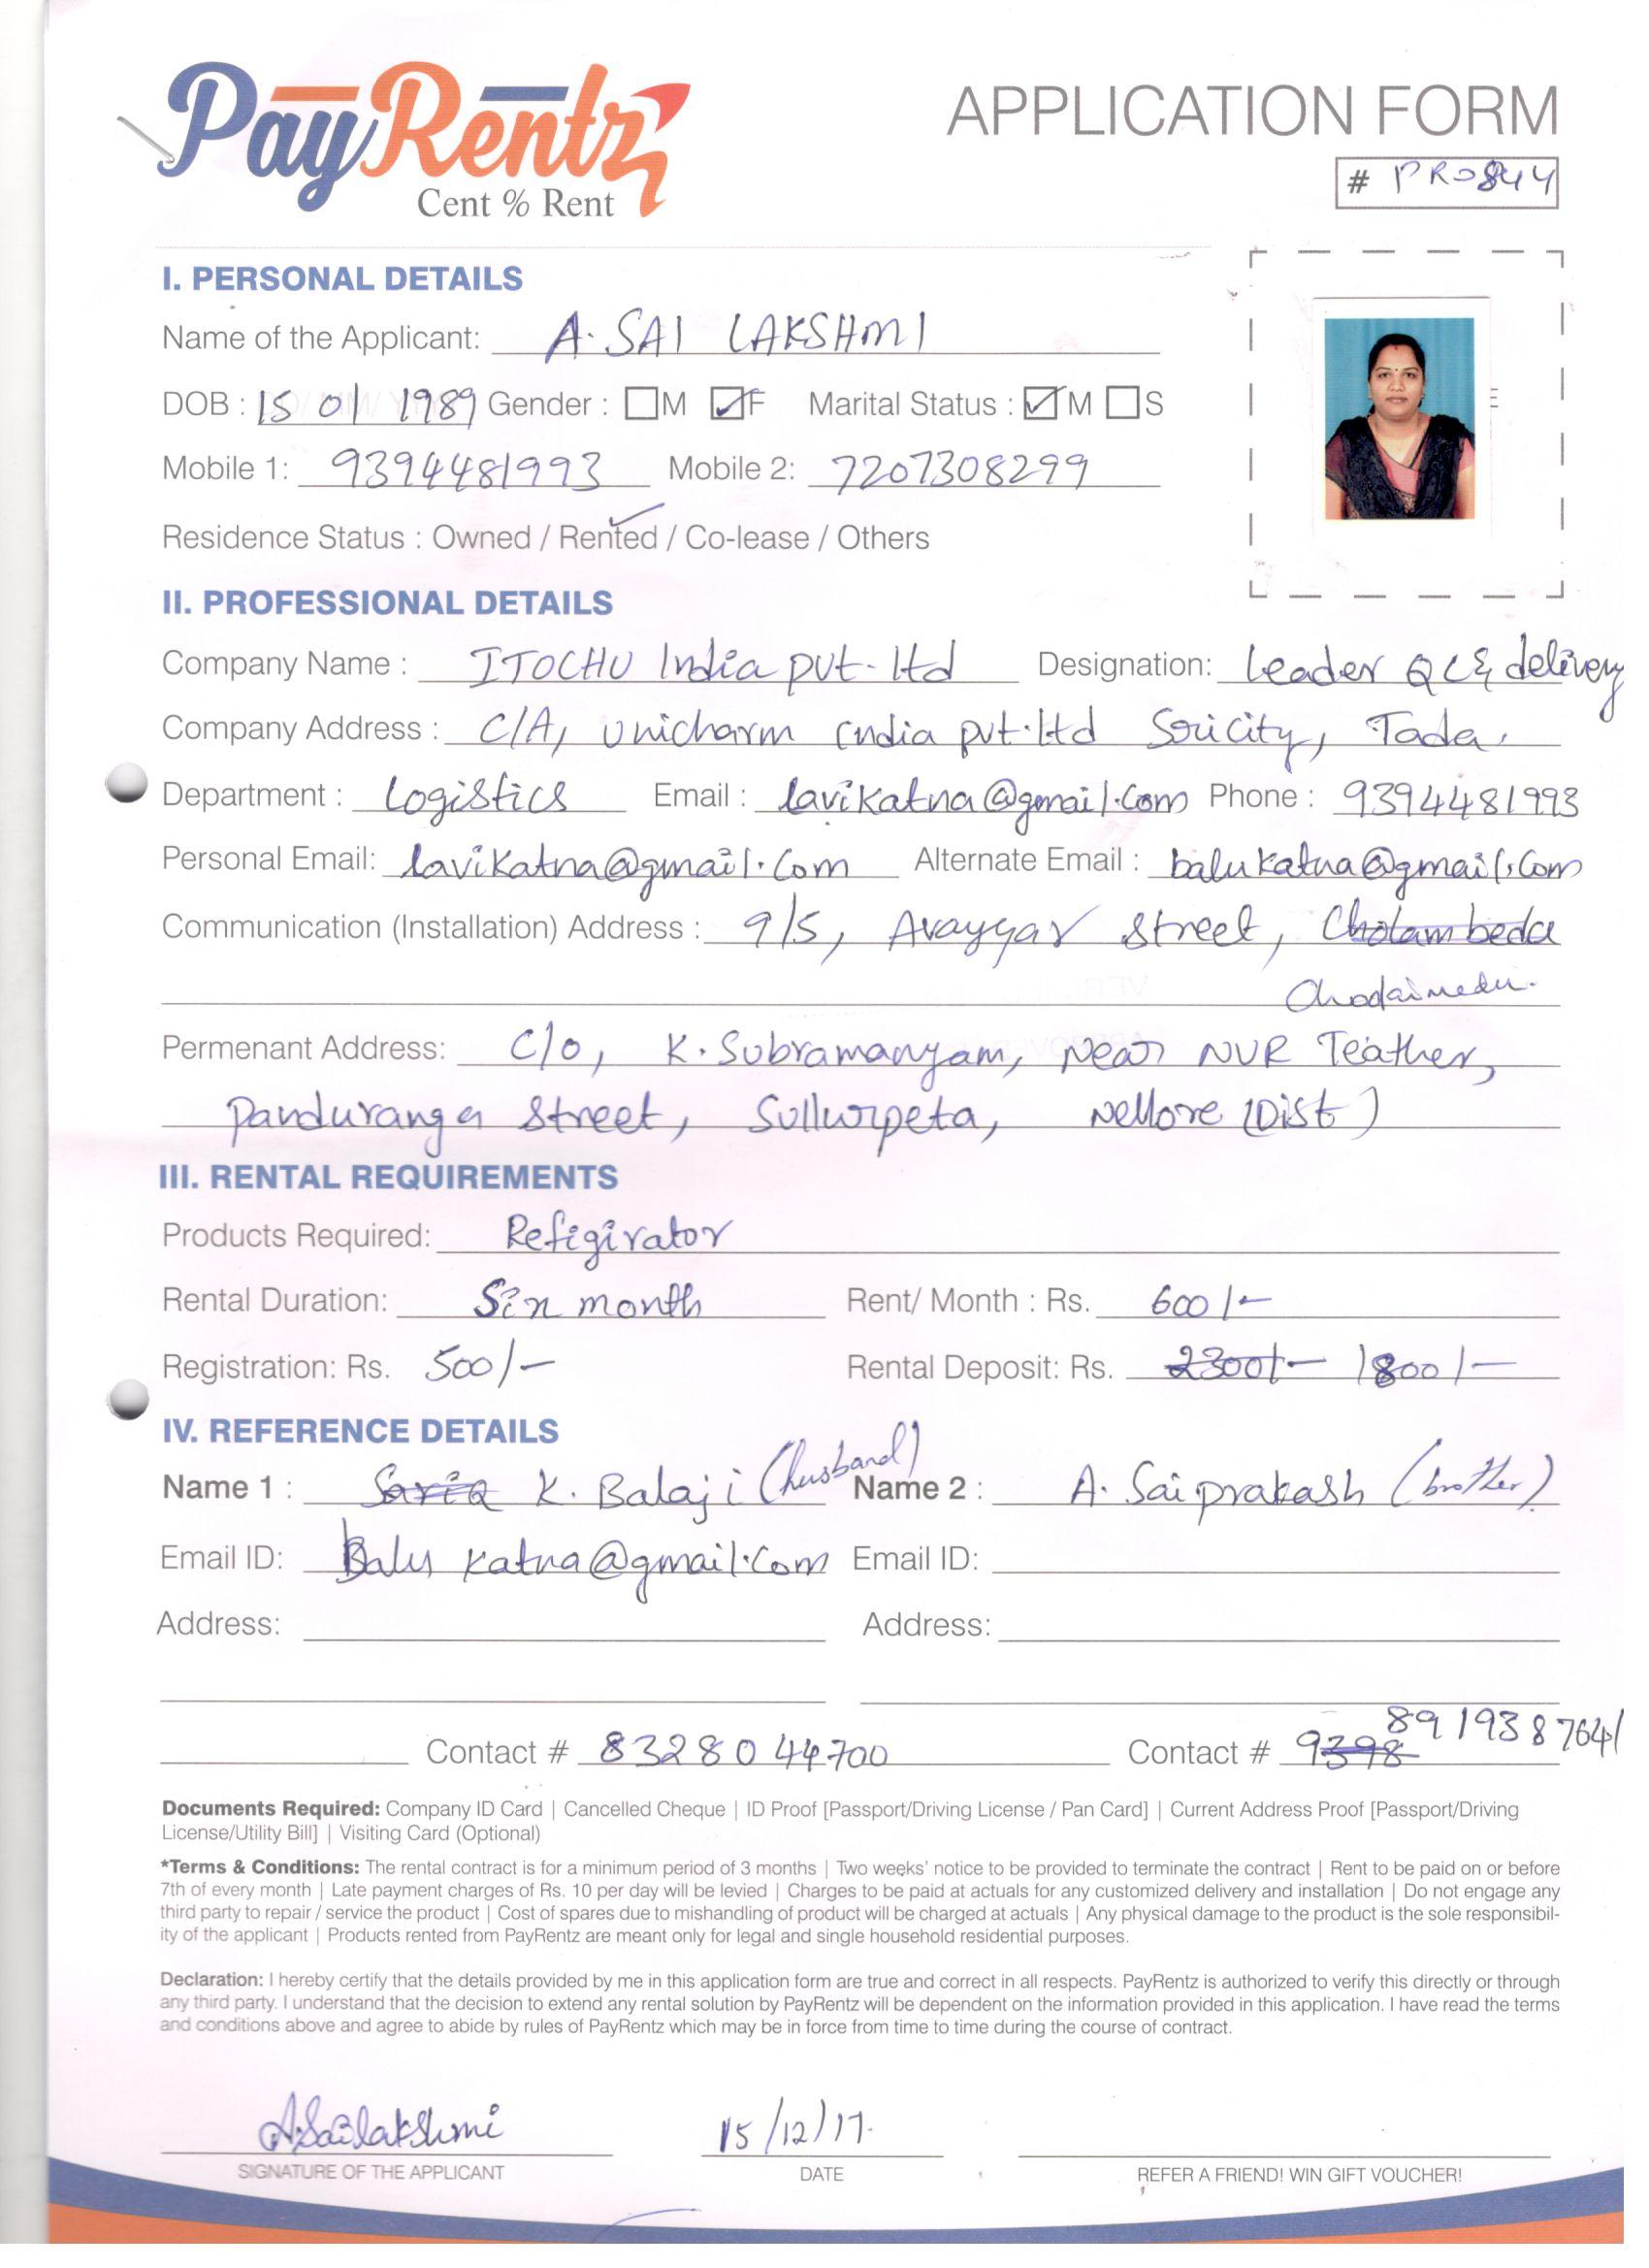 PayRentz
Cent % Rent
APPLICATION FORM
# PR0844
I. PERSONAL DETAILS
Name of the Applicant: A. SAI LAKSHMI
DOB : 15 01 1989 Gender : M F Marital Status : M S
Mobile 1: 9394481993 Mobile 2: 7207308299
Residence Status : Owned / Rented / Co-lease / Others
II. PROFESSIONAL DETAILS
Company Name : ITOCHU India pvt. ltd Designation: Leader QC & delivery
Company Address : C/A, Unicharm India pvt. ltd Sricity, Tada.
Department : Logistics Email : lavikatna@gmail.com Phone : 9394481993
Personal Email: lavikatna@gmail.com Alternate Email : balukatna@gmail.com
Communication (Installation) Address : 9/5, Avayyar Street,
Permenant Address: C/o, K. Subramanyam, Near NVR Teather,
Panduranga Street, Sullurpeta, Nellore (Dist)
III. RENTAL REQUIREMENTS
Products Required: Refigirator
Rental Duration: Six month Rent/ Month : Rs. 600/-
Registration: Rs. 500/- Rental Deposit: Rs. 2300/- 1800/-
IV. REFERENCE DETAILS
Name 1 : K. Balaji (husband) Name 2 : A. Saiprakash (brother)
Email ID: Balukatna@gmail.com Email ID:
Address: Address:
Contact # 8328044700 Contact # 9398 8919387641
Documents Required: Company ID Card | Cancelled Cheque | ID Proof [Passport/Driving License / Pan Card] | Current Address Proof [Passport/Driving
License/Utility Bill] | Visiting Card (Optional)
*Terms & Conditions: The rental contract is for a minimum period of 3 months | Two weeks' notice to be provided to terminate the contract | Rent to be paid on or before
7th of every month | Late payment charges of Rs. 10 per day will be levied | Charges to be paid at actuals for any customized delivery and installation | Do not engage any
third party to repair / service the product | Cost of spares due to mishandling of product will be charged at actuals | Any physical damage to the product is the sole responsibil-
ity of the applicant | Products rented from PayRentz are meant only for legal and single household residential purposes.
Declaration: I hereby certify that the details provided by me in this application form are true and correct in all respects. PayRentz is authorized to verify this directly or through
any third party. I understand that the decision to extend any rental solution by PayRentz will be dependent on the information provided in this application. I have read the terms
and conditions above and agree to abide by rules of PayRentz which may be in force from time to time during the course of contract.
A. Sailakshmi 15/12/17.
SIGNATURE OF THE APPLICANT DATE REFER A FRIEND! WIN GIFT VOUCHER!